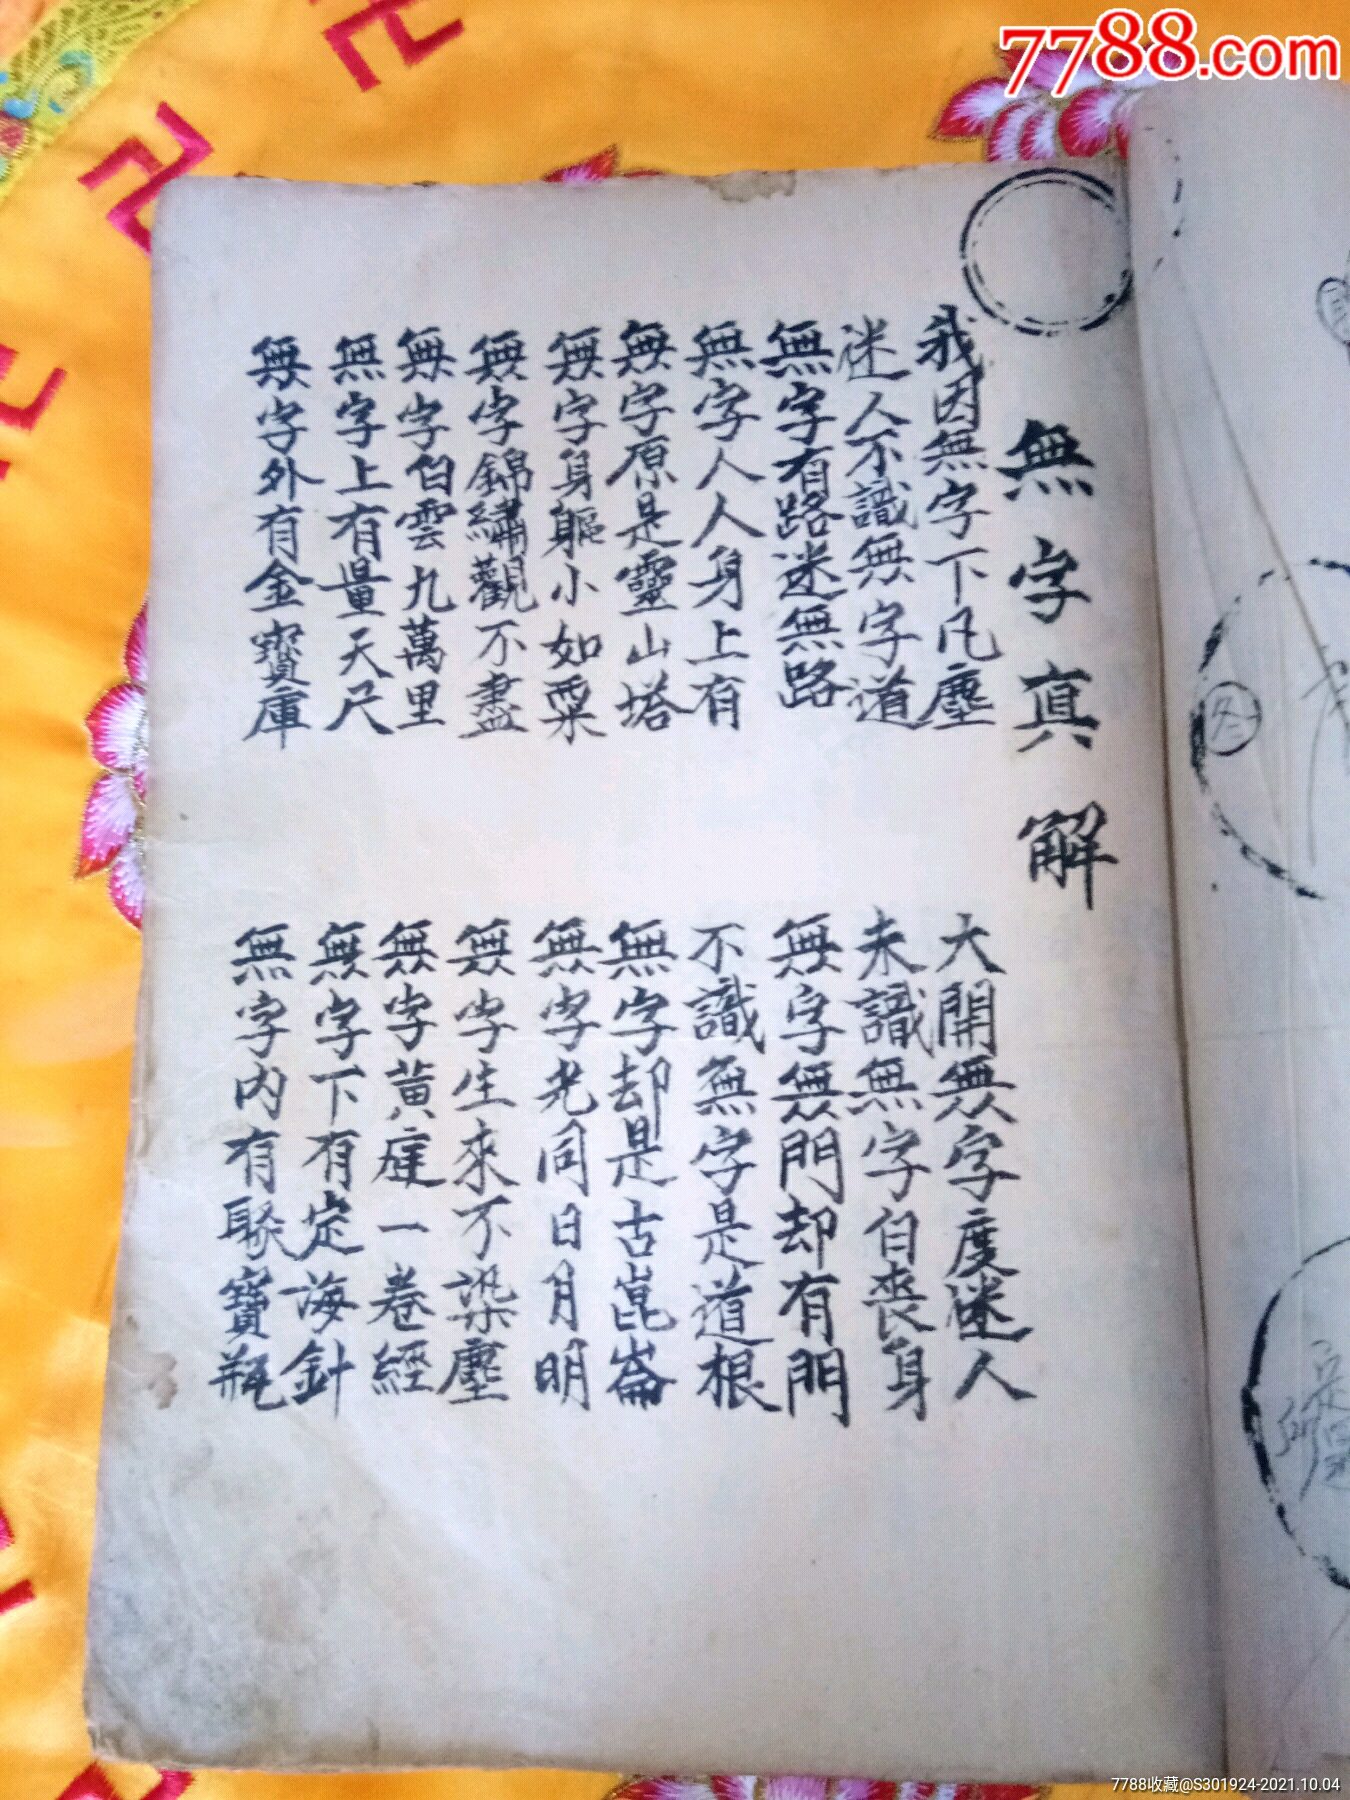 7788.com
無字真解
我因無字下凡塵
大開無字度迷人
迷人不識無字道
未識無字自喪身
無字有路迷無路
無字無門却有門
無字人人身上有
不識無字是道根
無字原是靈山塔
無字却是古崑崙
無字身軀小如粟
無字光同日月明
無字錦繡觀不盡
無字生來不染塵
無字白雲九萬里
無字黄庭一卷經
無字上有量天尺
無字下有定海針
無字外有金寶庫
無字内有聚寶瓶
冬
7788收藏@S301924-2021.10.04